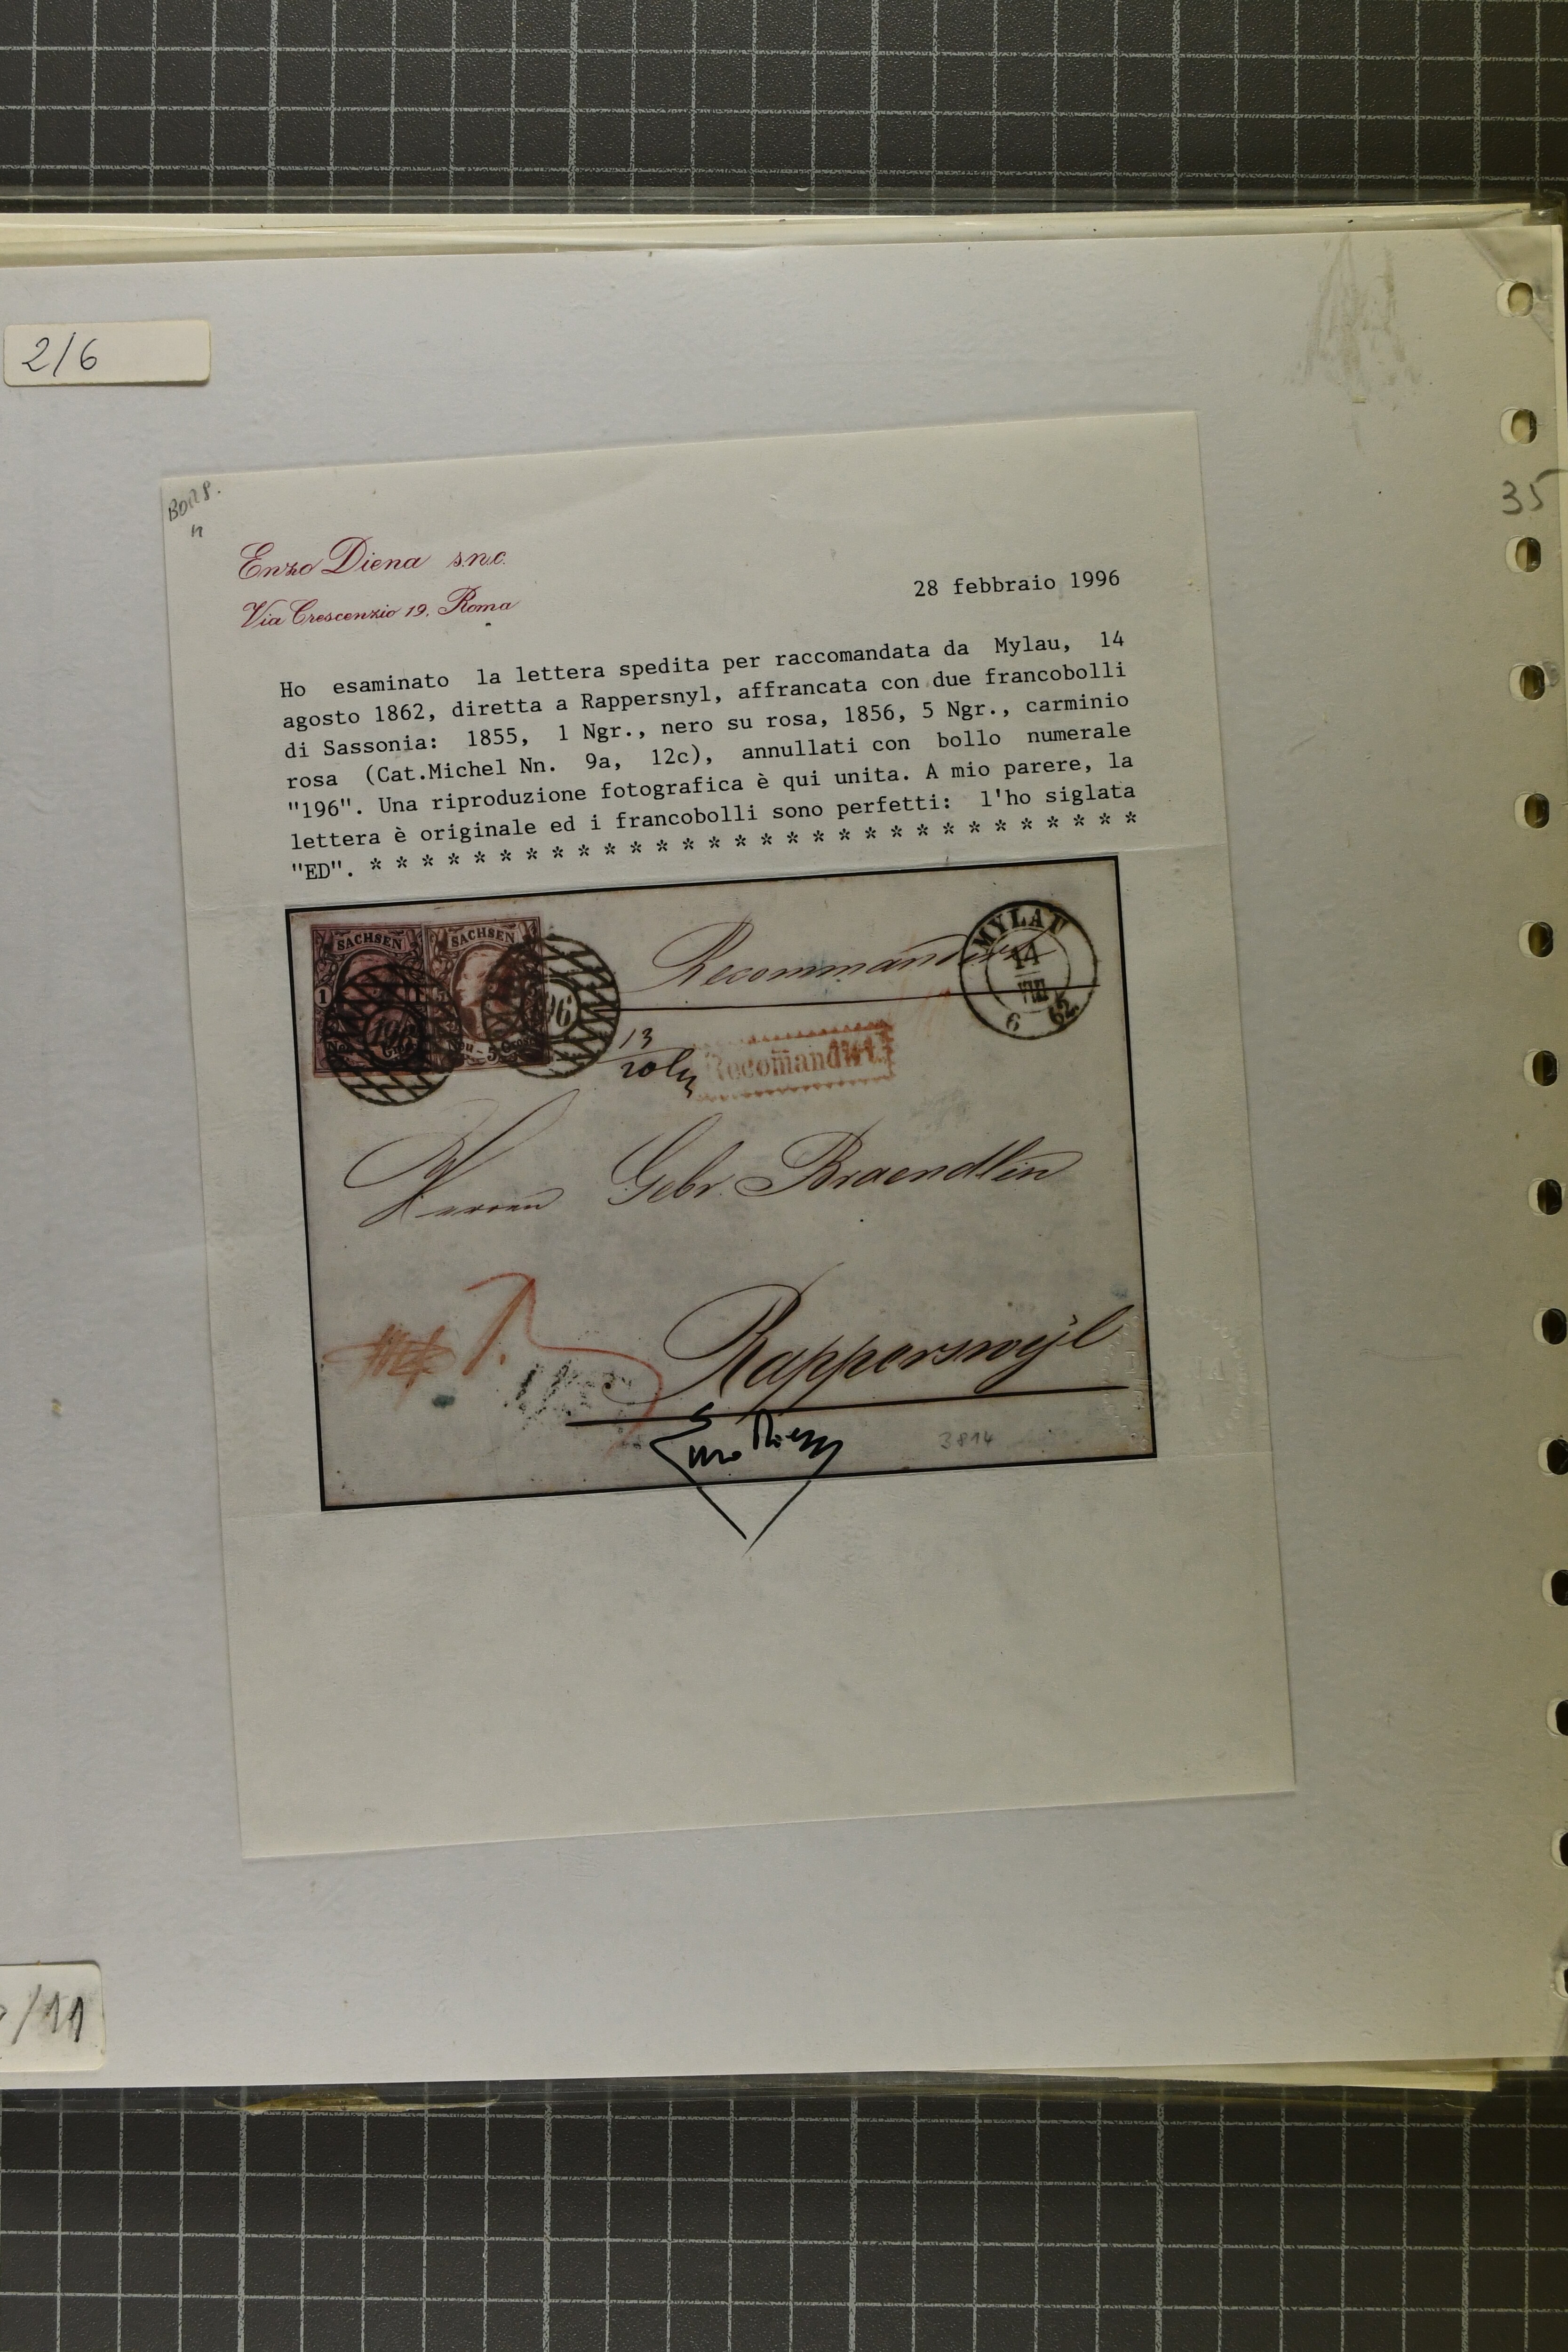 2/6
35
BORS.
Enzo Diena s.n.c.
Via Crescenzio 19, Roma
28 febbraio 1996
Ho esaminato la lettera spedita per raccomandata da Mylau, 14
agosto 1862, diretta a Rappersnyl, affrancata con due francobolli
di Sassonia: 1855, 1 Ngr., nero su rosa, 1856, 5 Ngr., carminio
rosa (Cat.Michel Nn. 9a, 12c), annullati con bollo numerale
"196". Una riproduzione fotografica è qui unita. A mio parere, la
lettera è originale ed i francobolli sono perfetti: l'ho siglata
"ED". * * * * * * * * * * * * * * * * * * * * * * * * * * * * * *
SACHSEN
SACHSEN
1
196
96
MYLAU
14
VIII
6 62
13
Recomandirt.
Herren Gebr. Braendlin
Rapperswyl
Enzo Diena
3814
/11